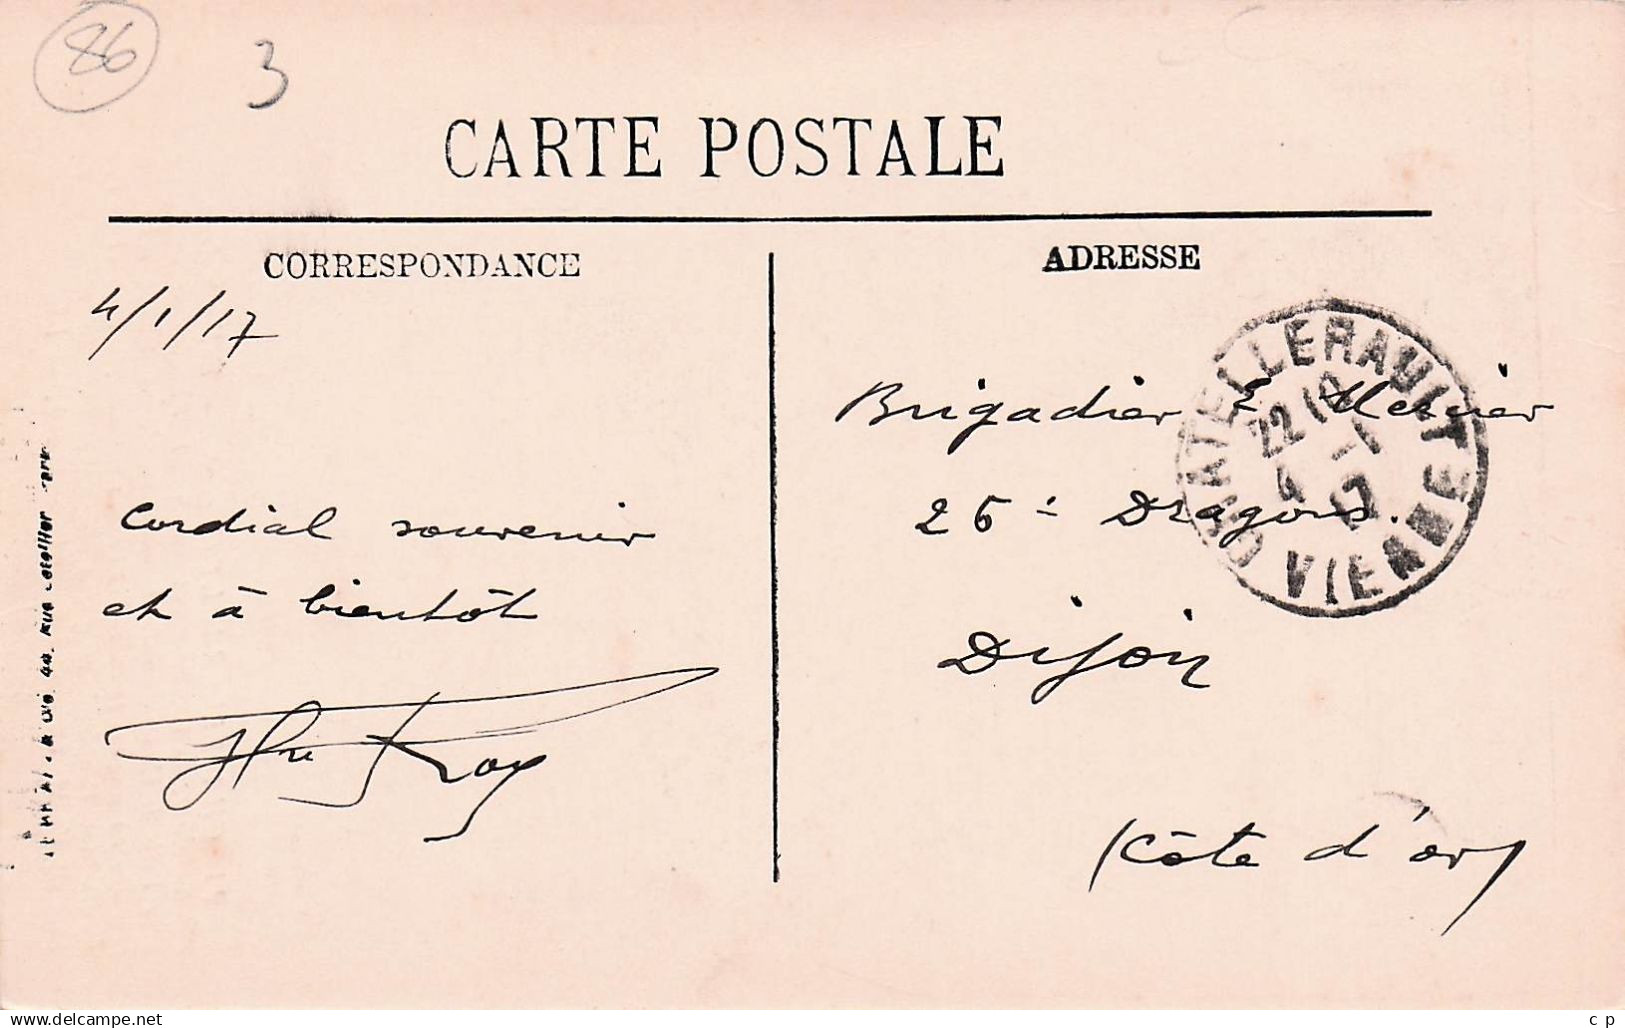 86
3
CARTE POSTALE
CORRESPONDANCE
4/1/17
Cordial souvenir
et à bientôt
Roy
ADRESSE
CHATELLERAULT
22
4 -1
17
VIENNE
Brigadier E. Mercier
26e Dragons.
Dijon
(Côte d'or)
www.delcampe.net
cp